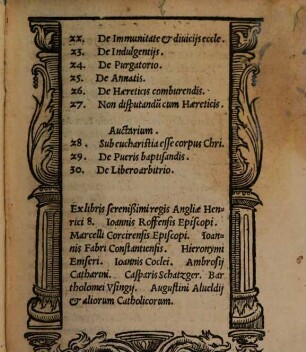 22. De Immunitate & diuicijs eccle.
23. De Indulgentijs.
24. De Purgatorio.
25. De Annatis.
26. De Hæreticis comburendis.
27. Non disputandū cum Hæreticis.
Auctarium.
28. Sub eucharistia esse corpus Chri.
29. De Pueris baptisandis.
30. De Libero arbitrio.
Ex libris serenißimi regis Angliæ Hen-
rici 8. Ioannis Roffensis Episcopi.
Marcelli Corcirensis Episcopi. Ioan-
nis Fabri Constantiensis. Hieronymi
Emseri. Ioannis Coclei. Ambrosij
Catharini. Casparis Schatzger. Bar
tholomei Vsingij. Augustini Alueldij
& aliorum Catholicorum.